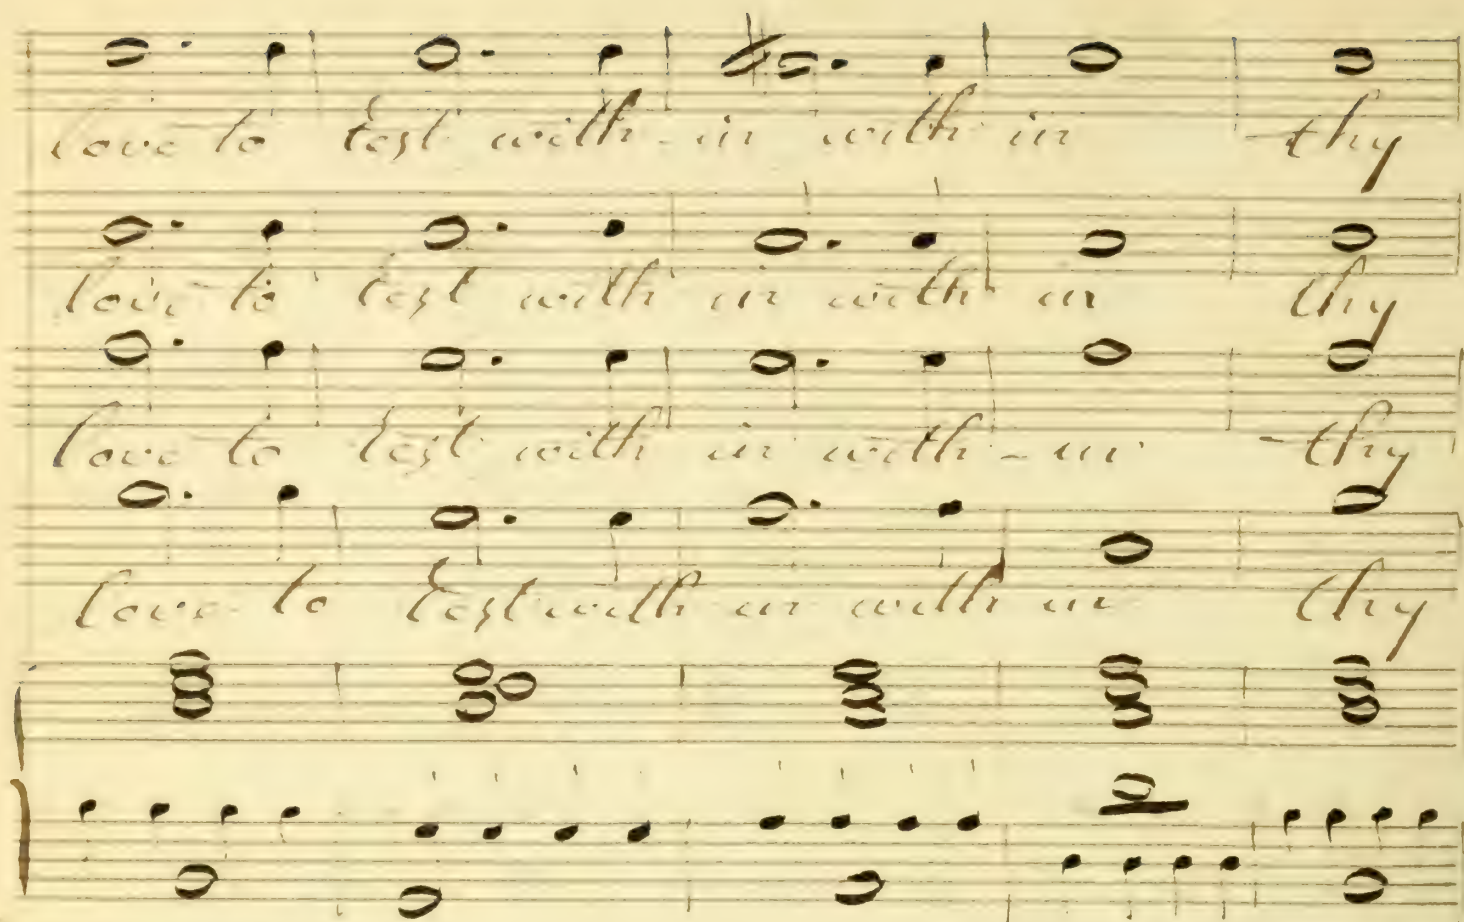 love to rest with-in with in thy
love to rest with in with in thy
love to rest with in with-in thy
love to rest with in with in thy